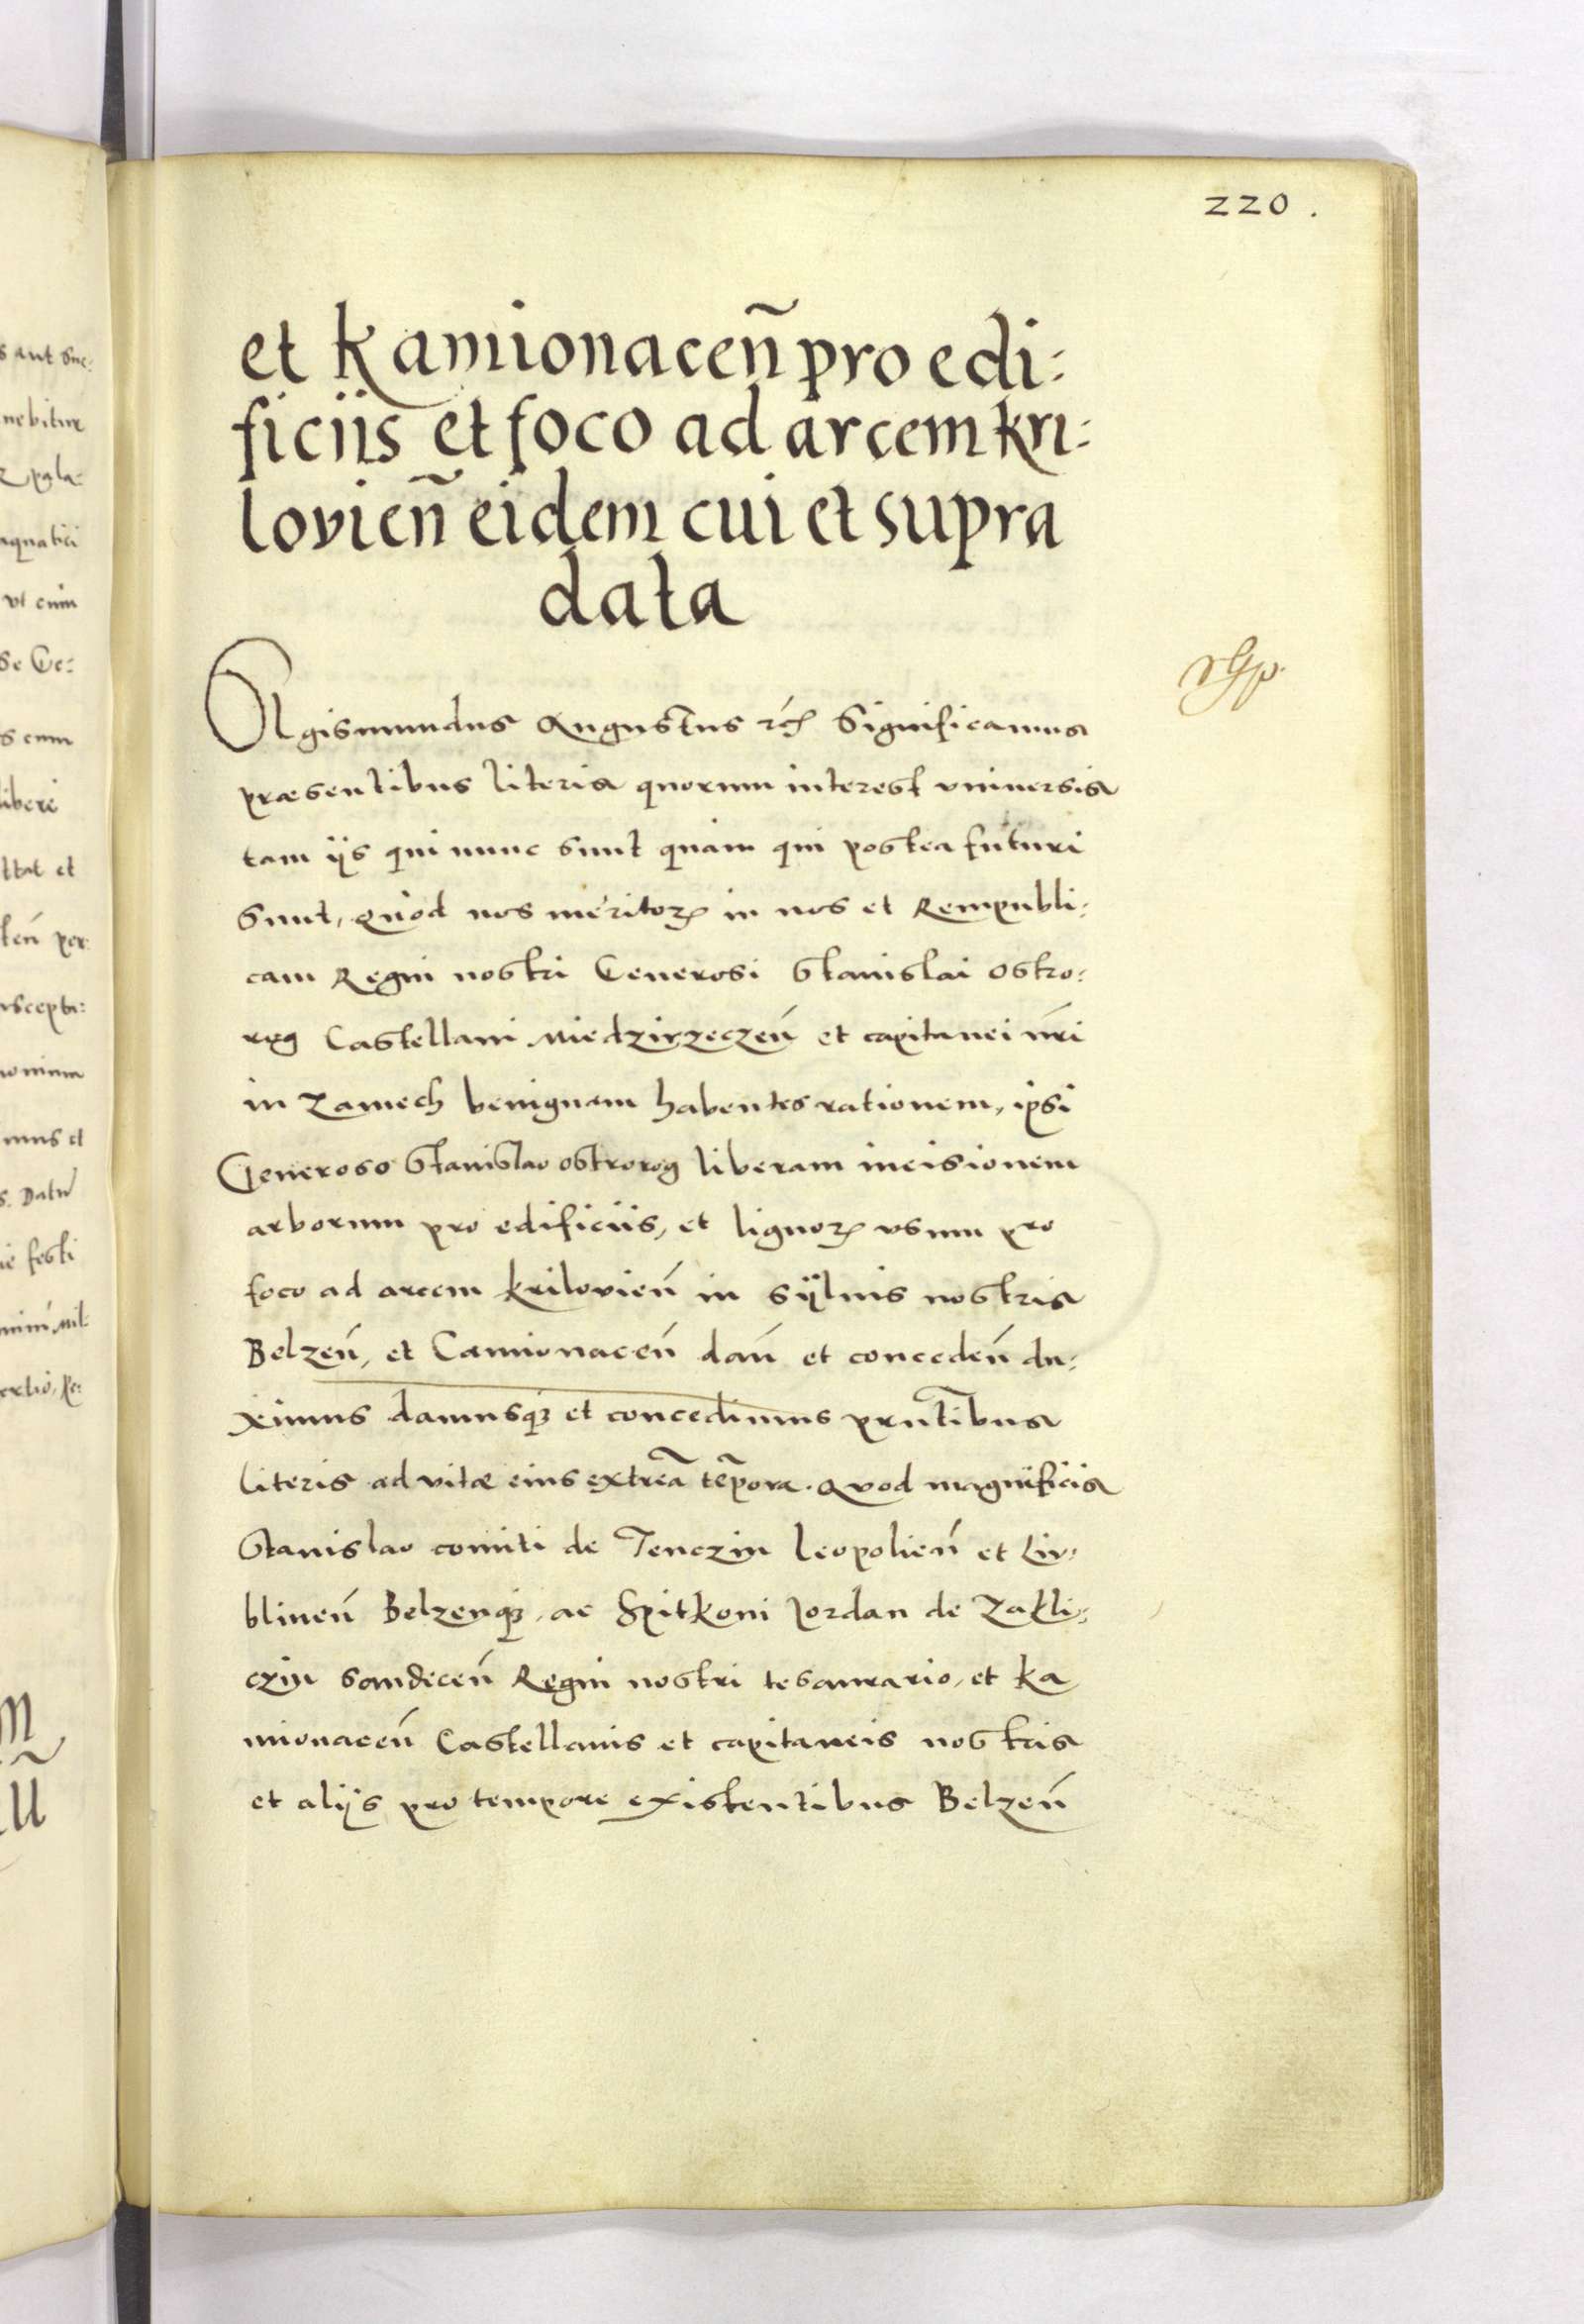 220.
et Kamionacen̄ pro edi:
ficiis et foco ad arcem kri:
lovien̄ eidem cui et supra
data
Sigismundus Augustus rc̄ Significamus
præsentibus literis quorum interest vniuersis
tam ijs qui nunc sunt quàm qui postea futuri
sunt, quòd nos meritoꝝ in nos et Rempubli:
cam Regni nostri Generosi Stanislai Ostro:
rog Castellani Miedzirzeczen̄ et capitanei nr̄i
in Zamech benignam habentes rationem, ipsi
Generoso Stanislao ostrorog liberam incisionem
arborum pro edificiis, et lignoꝝ vsum pro
foco ad arcem krilovien̄ in sÿluis nostris
Belzen̄, et Camionacen̄ dan̄ et conceden̄ du:
ximus damusqꝫ et concedimus prn̄tibus
literis ad vitæ eius extrēa tēpora. Quod magnificis
Stanislao comiti de Tenczin Leopolien̄ et Lu:
blinen̄ Belzenqꝫ, ac Spitkoni Jordan de Zakli:
czin Sandecen̄ Regni nostri tesaurario, et Ka
mionacen̄ Castellanis et capitaneis nostris
et alijs pro tempore existentibus Belzen̄